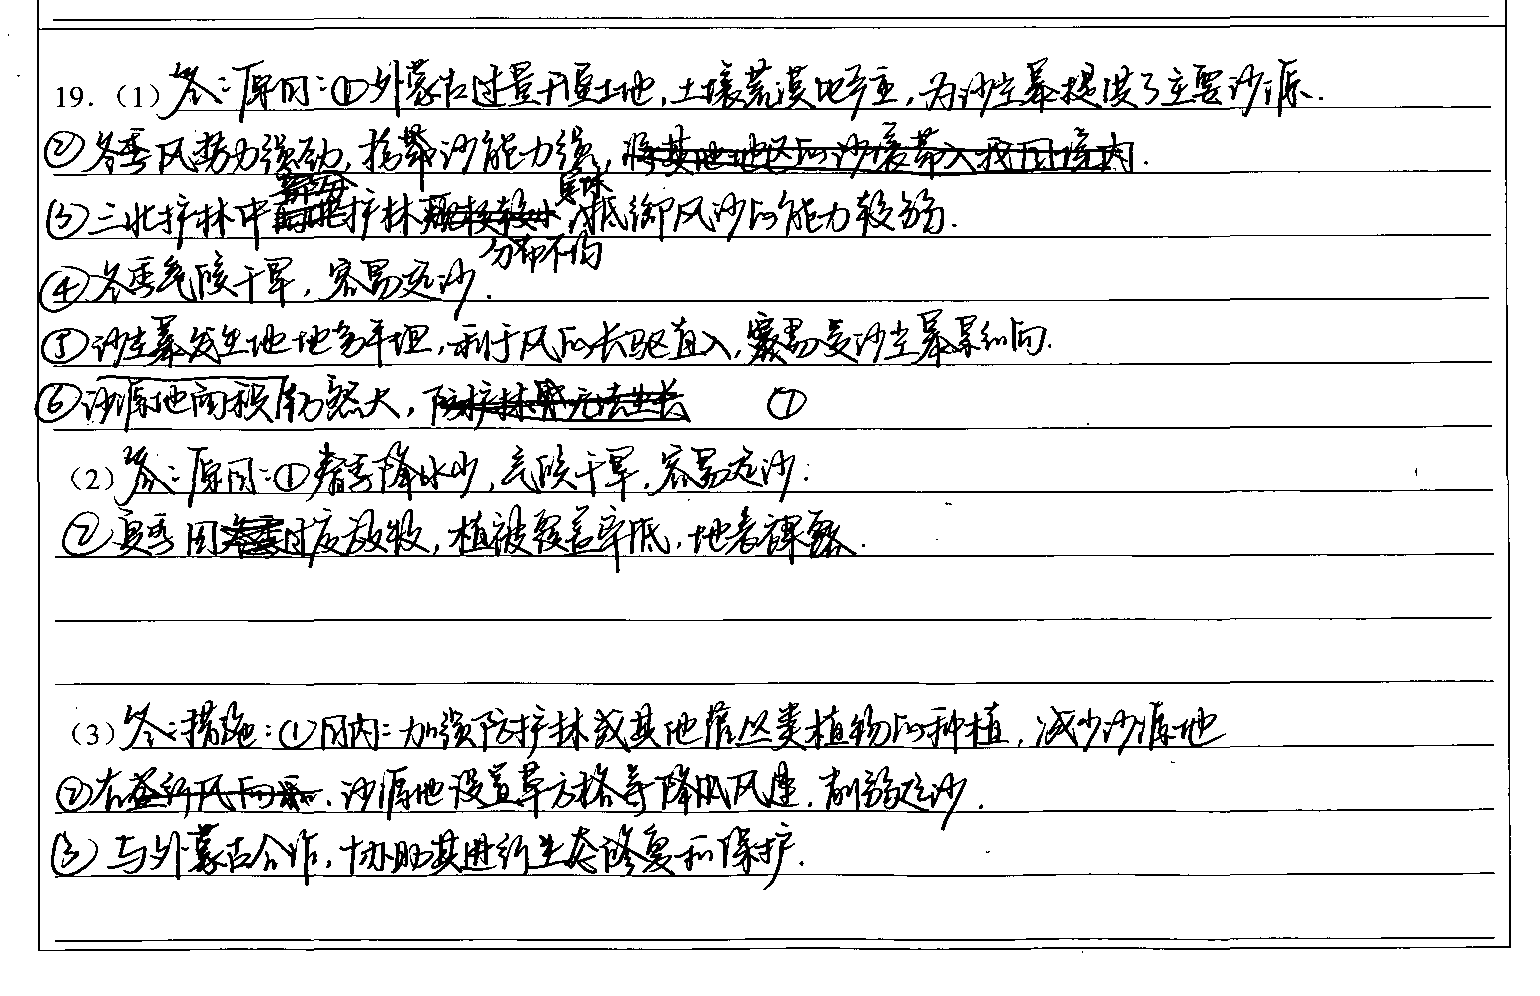 19.（1）答：原因：①外蒙古过量开垦土地，土壤荒漠化严重，为沙尘暴提供了主要沙源.
②冬季风势力强劲，携带沙能力强，将其他地区的沙漠带入我国境内.
③三北护林中部分护林树种较少，分布不均，抵御风沙的能力较弱.
④冬季气候干旱，容易起沙.
⑤沙尘暴发生地地势平坦，利于风的长驱直入，容易受沙尘暴影响.
⑥沙源地面积仍然大，防护林无法生长 ①
（2）答：原因：①春季降水少，气候干旱，容易起沙.
②夏季因过度放牧，植被覆盖率低，地表裸露.
（3）答：措施：①国内：加强防护林或其他灌丛类植物的种植，减少沙源地
②在沙源地设置草方格等降低风速，削弱起沙.
③与外蒙古合作，协助其进行生态修复和保护.